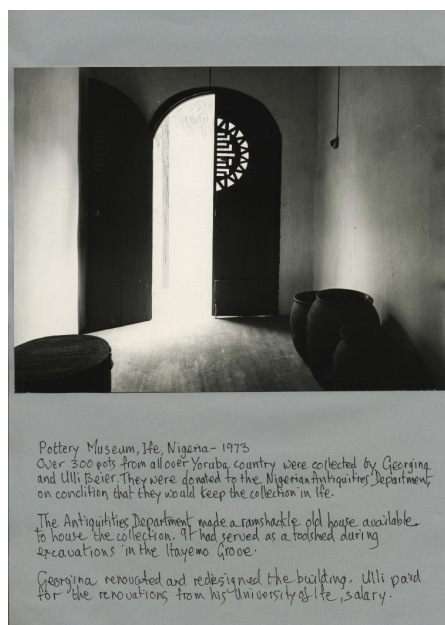 Pottery Museum, Ife, Nigeria - 1973
Over 300 pots from all over Yoruba country were collected by Georgina
and Ulli Beier. They were donated to the Nigerian Antiquities Department
on condition that they would keep the collection in Ife.
The Antiquitities Department made a ramshackle old house available
to house the collection. It had served as a toolshed during
excavations in the Itayemo Grove.
Georgina renovated and redesigned the building. Ulli paid
for the renovations from his University of Ife, salary.